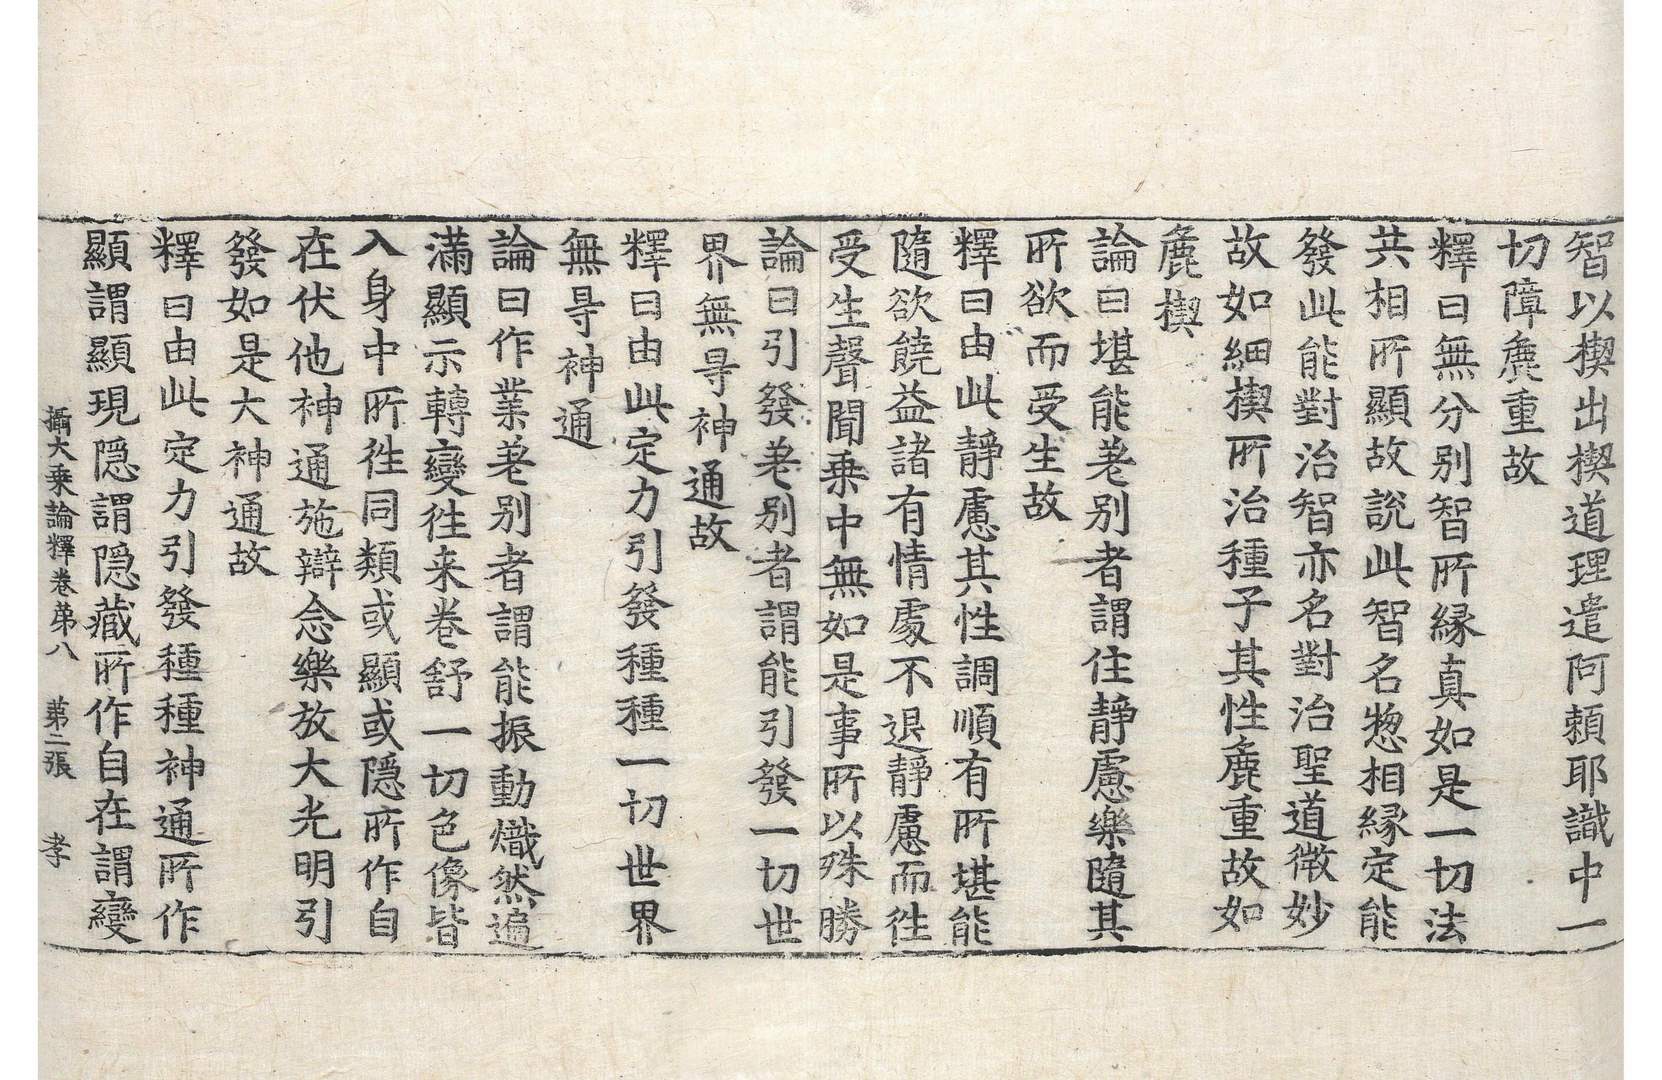 智以楔出楔道理遣阿頼耶識中一
切障麁重故
釋曰無分別智所緣真如是一切法
共相所顯故說此智名惣相緣定能
發此能對治智亦名對治聖道微妙
故如細楔所治種子其性麁重故如
麁楔
論曰堪能差別者謂住靜慮樂隨其
所欲而受生故
釋曰由此靜慮其性調順有所堪能
隨欲饒益諸有情處不退靜慮而徃
受生聲聞乗中無如是事所以殊勝
論曰引發差別者謂能引發一切世
界無㝵神通故
釋曰由此定力引發種種一切世界
無㝵神通
論曰作業差別者謂能振動熾然遍
滿顯示轉變徃来卷舒一切色像皆
入身中所徃同類或顯或隱所作自
在伏他神通施辯念樂放大光明引
發如是大神通故
釋曰由此定力引發種種神通所作
顯謂顯現隱謂隱藏所作自在謂變
攝大乗論釋卷苐八 苐二張 孝